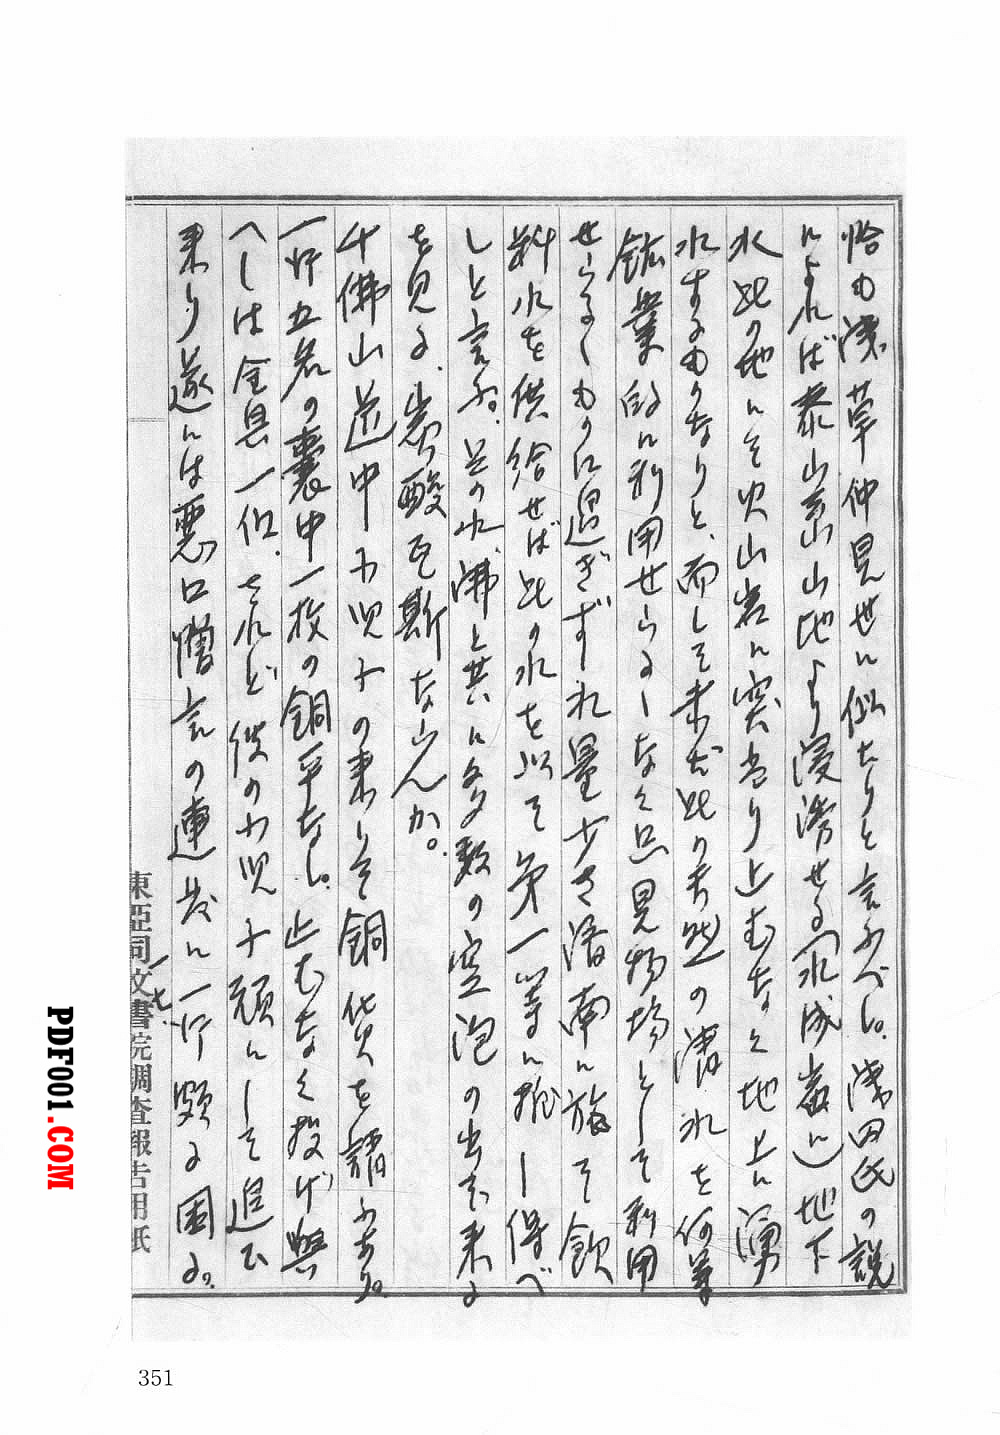 恰も浅草仲見世に似たりと言ふべし。浅田氏の説
によれば泰山高山地より浸潜せる(水成岩に)地下
水此の地にて火山岩に突当り止むなく地上に湧
水するものなりと、而して未だ此の天然の清水を何等
鉱業的に利用せらるゝなく只見物場として利用
せらるゝものに過ぎず水量少き済南に於て飲
料水を供給せば此の水を以て第一等に推し得べ
しと言ふ。その水、沸と共に多数の空泡の出で来る
を見る、炭酸瓦斯ならんか。
千佛山道中小児等の来りて銅貨を請ふあり。
一行五名の嚢中一枚の銅平なし。止むなく投げ與
へしは全員一仙、されど彼の小児等頑にして追ひ
来り遂には悪口憎言の連発に一行頗る困る。
一七、
東亞同文書院調査報告用紙
351
PDF001.COM